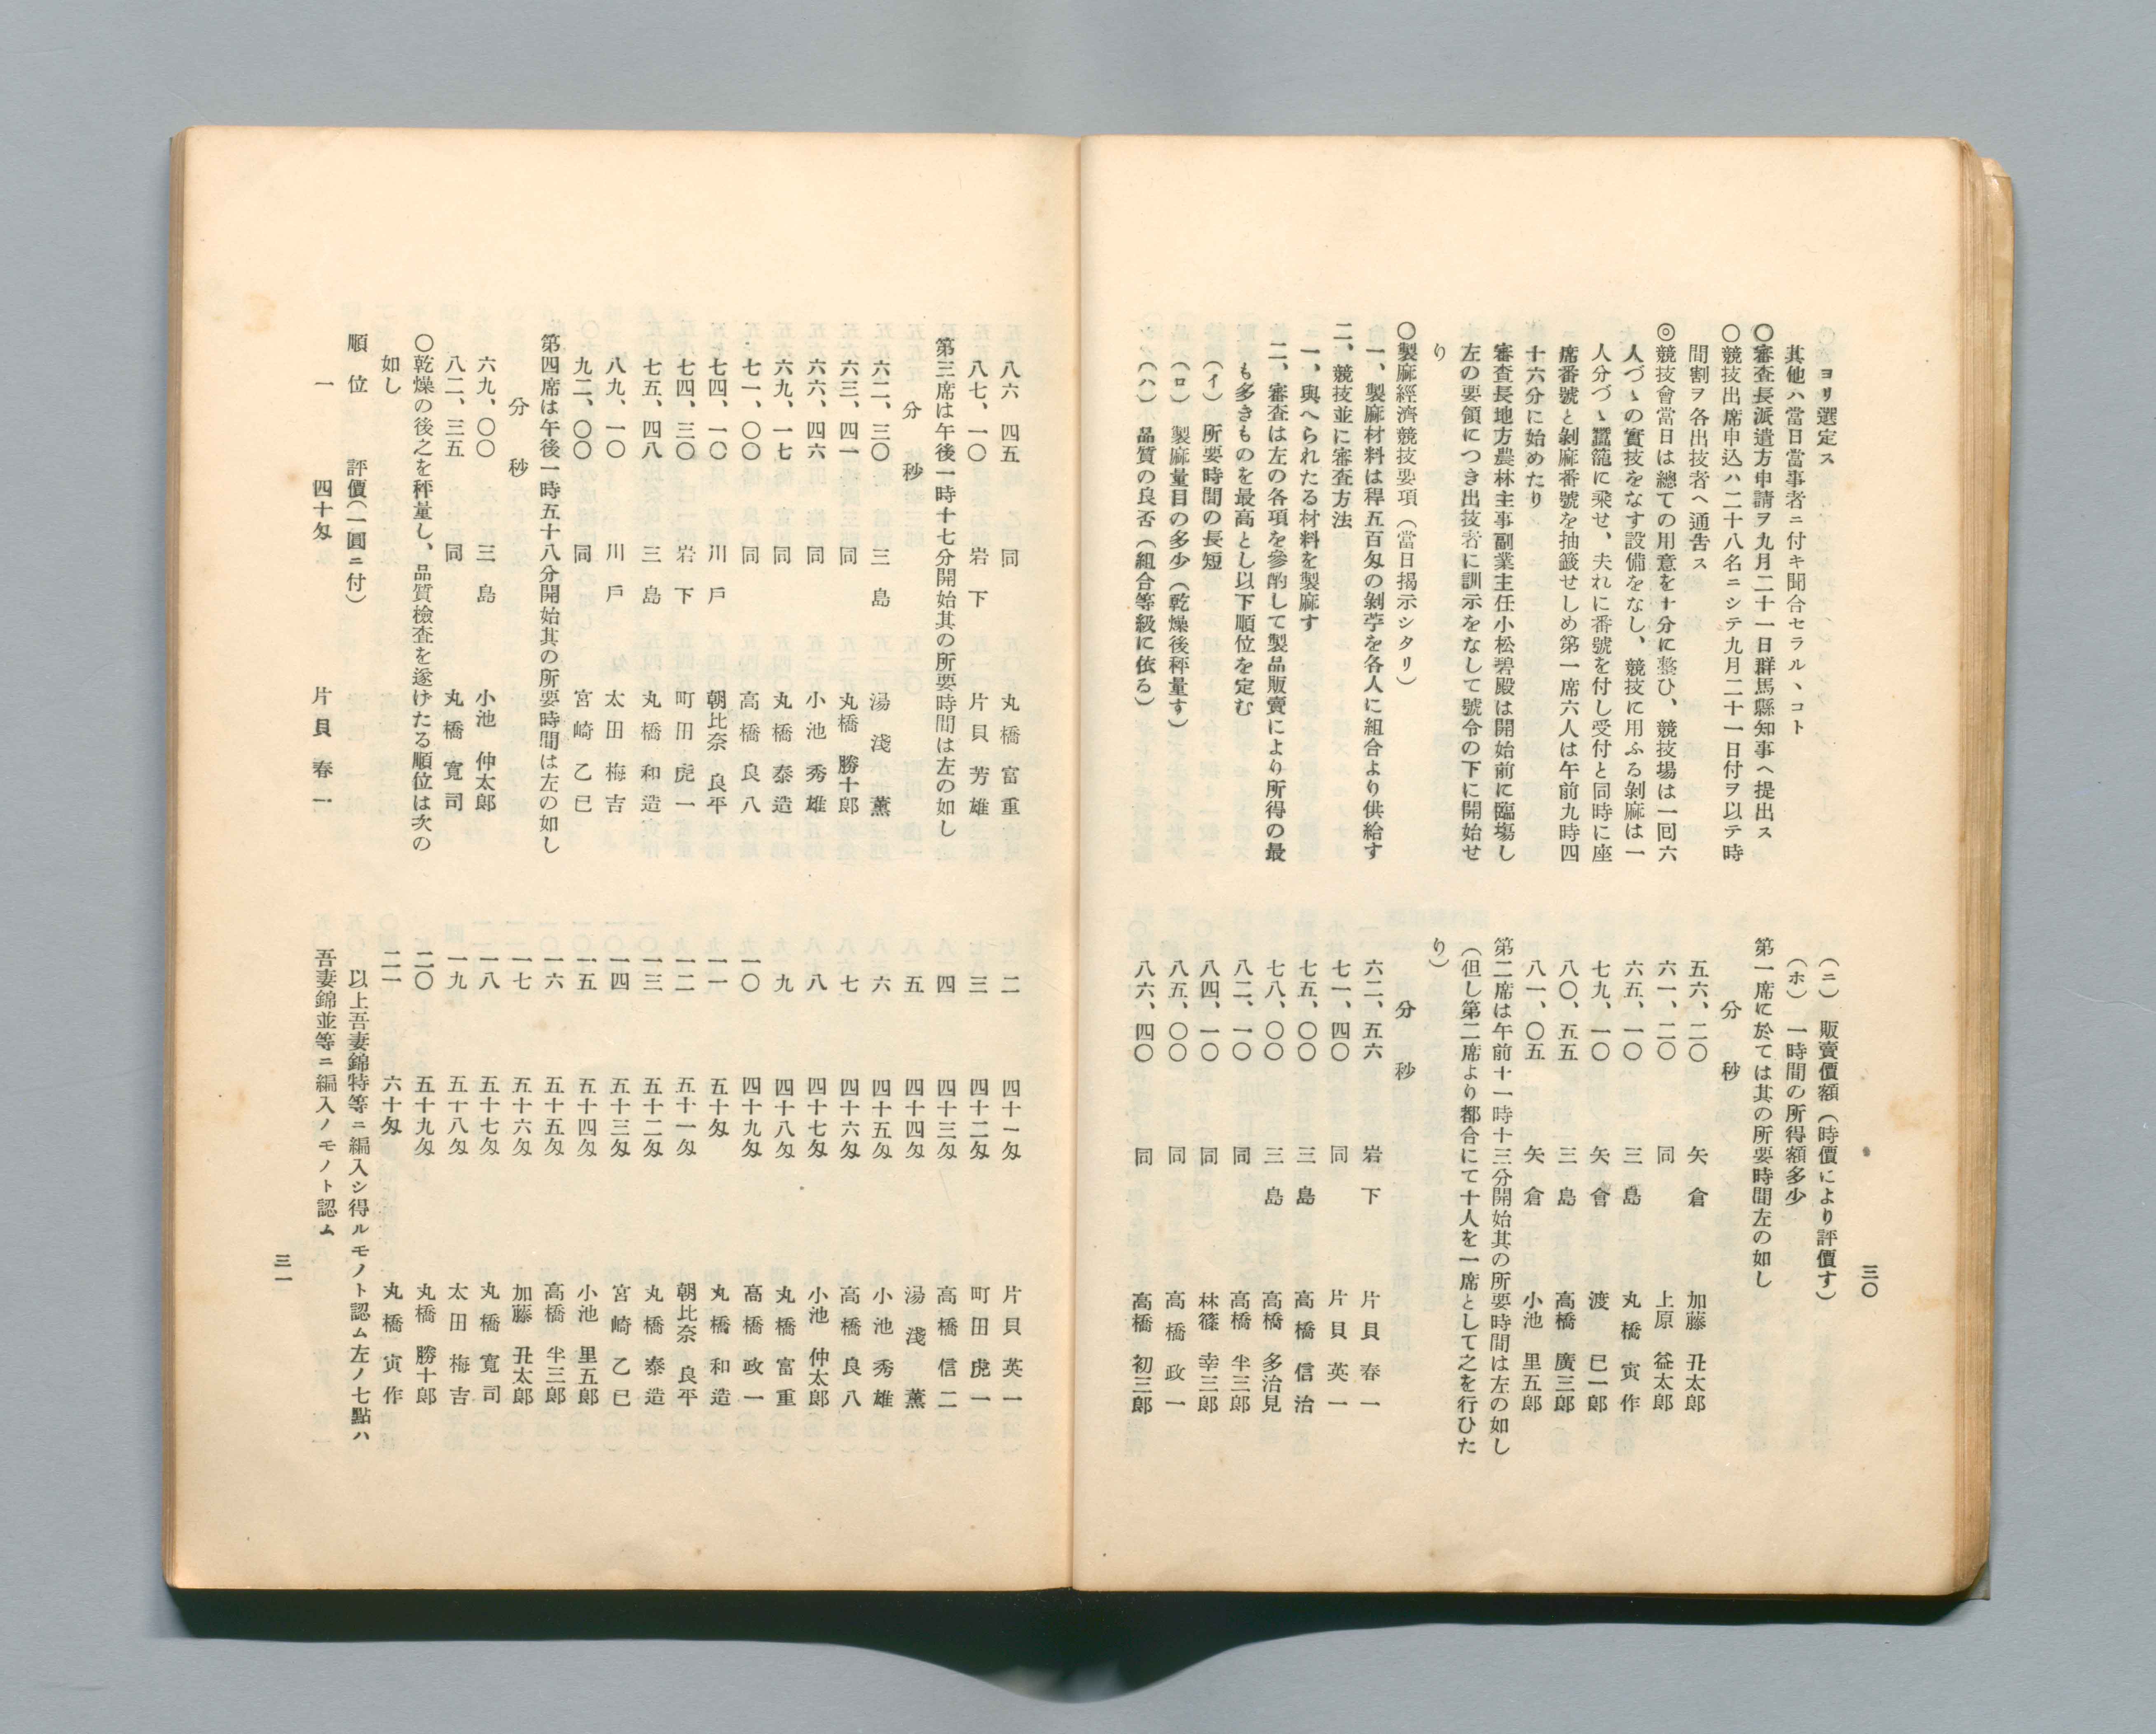 三〇
ヨリ選定ス
其他ハ當日當事者ニ付キ聞合セラル丶コト
〇審査長派遣方申請ヲ九月二十一日群馬縣知事ヘ提出ス
〇競技出席申込ハ二十八名ニシテ九月二十一日付ヲ以テ時
間割ヲ各出技者ヘ通告ス
◎競技會當日は總ての用意を十分に整ひ、競技場は一囘六
人づゝの實技をなす設備をなし、競技に用ふる剝麻は一
人分づゝ蠶籠に乘せ、夫れに番號を付し受付と同時に座
席番號と剝麻番號を抽籤せしめ第一席六人は午前九時四
十六分に始めたり
審査長地方農林主事副業主任小松碧殿は開始前に臨場し
左の要領につき出技者に訓示をなして號令の下に開始せ
り
〇製麻經濟競技要項（當日揭示シタリ）
一、製麻材料は稈五百匁の剝苧を各人に組合より供給す
二、競技並に審査方法
一、與へられたる材料を製麻す
二、審査は左の各項を參酌して製品販賣により所得の最
も多きものを最高とし以下順位を定む
（イ）　所要時間の長短
（ロ）　製麻量目の多少（乾燥後秤量す）
（ハ）　品質の良否（組合等級に依る）
（ニ）　販賣價額（時價により評價す）
（ホ）　一時間の所得額多少
第一席に於ては其の所要時間左の如し
分　秒
五六、二〇　矢倉　加藤　丑太郎
六一、二〇　同　上原　益太郎
六五、一〇　三島　丸橋寅作
七九、一〇　矢倉　渡　巳一郎
八〇、五五　三島　高橋　廣三郎
八一、〇五　矢倉　小池　里五郎
第二席は午前十一時十三分開始其の所要時間は左の如し
（但し第二席より都合にて十人を一席として之を行ひた
り）
分　秒
六二、五六　岩下　片貝春一
七一、四〇　同　片貝英一
七五、〇〇　三島　高橋信治
七八、〇〇　三島　高橋　多治見
八二、一〇　同　高橋　半三郎
八四、一〇　同　林篠　幸三郎
八五、〇〇　同　高橋政一
八六、四〇　同　高橋　初三郎
八六　四五　同　丸橋富重
八七、一〇　岩下　片貝芳雄
第三席は午後一時十七分開始其の所要時間は左の如し
分　秒
六二、三〇　三島　湯淺薰
六三、四一　同　丸橋　勝十郎
六六、四六　同　小池秀雄
六九、一七　同　丸橋泰造
七一、〇〇　同　高橋良八
七四、一〇　川戶　朝比奈　良平
七四、三〇　岩下　町田虎一
七五、四八　三島　丸橋和造
八九、一〇　川戶　太田梅吉
九二、〇〇　同　宮崎乙巳
第四席は午後一時五十八分開始其の所要時間は左の如し
分　秒
六九、〇〇　三島　小池　仲太郎
八二、三五　同　丸橋寬司
〇乾燥の後之を秤量し、品質檢査を遂けたる順位は次の
如し
順位　評價（一圓ニ付）
一　四十匁　片貝春一
二　四十一匁　片貝英一
三　四十二匁　町田虎一
四　四十三匁　高橋信二
五　四十四匁　湯淺薰
六　四十五匁　小池秀雄
七　四十六匁　高橋良八
八　四十七匁　小池　仲太郎
九　四十八匁　丸橋富重
一〇　四十九匁　高橋政一
一一　五十匁　丸橋和造
一二　五十一匁　朝比奈　良平
一三　五十二匁　丸橋泰造
一四　五十三匁　宮崎乙巳
一五　五十四匁　小池　里五郎
一六　五十五匁　高橋　半三郎
一七　五十六匁　加藤　丑太郎
一八　五十七匁　丸橋寬司
一九　五十八匁　太田梅吉
二〇　五十九匁　丸橋　勝十郎
二一　六十匁　丸橋寅作
以上吾妻錦特等ニ編入シ得ルモノト認ム左ノ七點ハ
吾妻錦並等ニ編入ノモノト認ム
三一